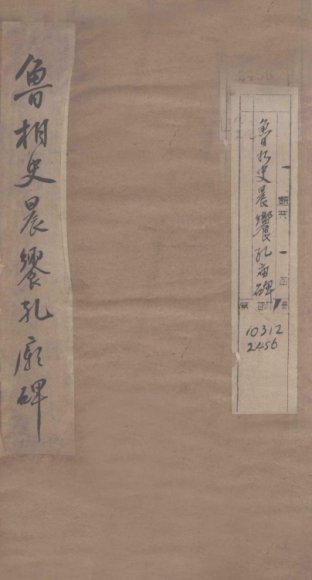 魯相史晨饗孔廟碑
魯相史晨饗孔庙碑
10312
2456